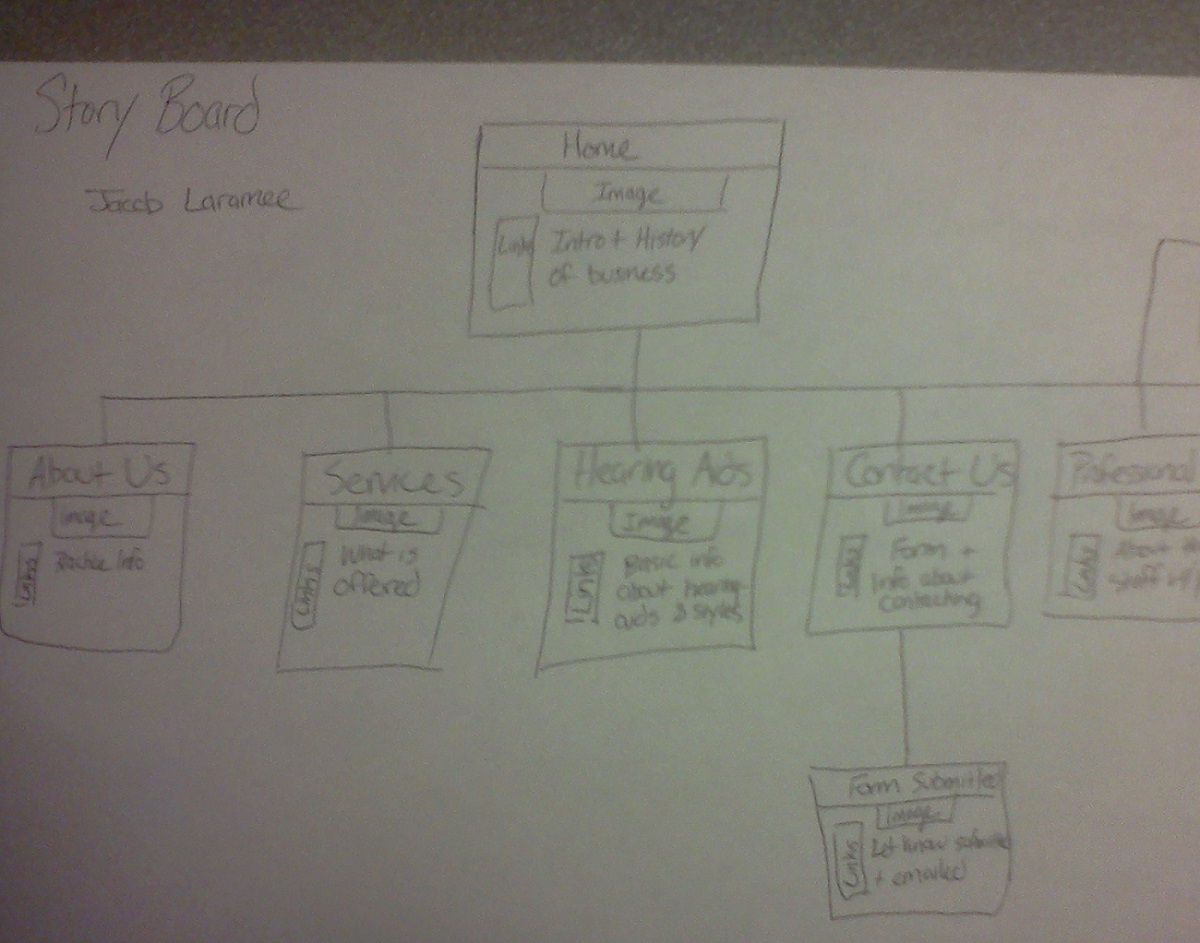 Story Board
Jacob Laramee
Home
Image
Links
Intro + History
of business
About Us
Image
Links
Info
Services
Image
Links
What is
offered
Hearing Aids
Image
Links
Basic info
about hearing
aids & styles
Contact Us
Image
Links
Form +
info about
contacting
Professional
Image
Links
About
Staff
Form Submitted
Image
Links
Let know submitted
+ emailed